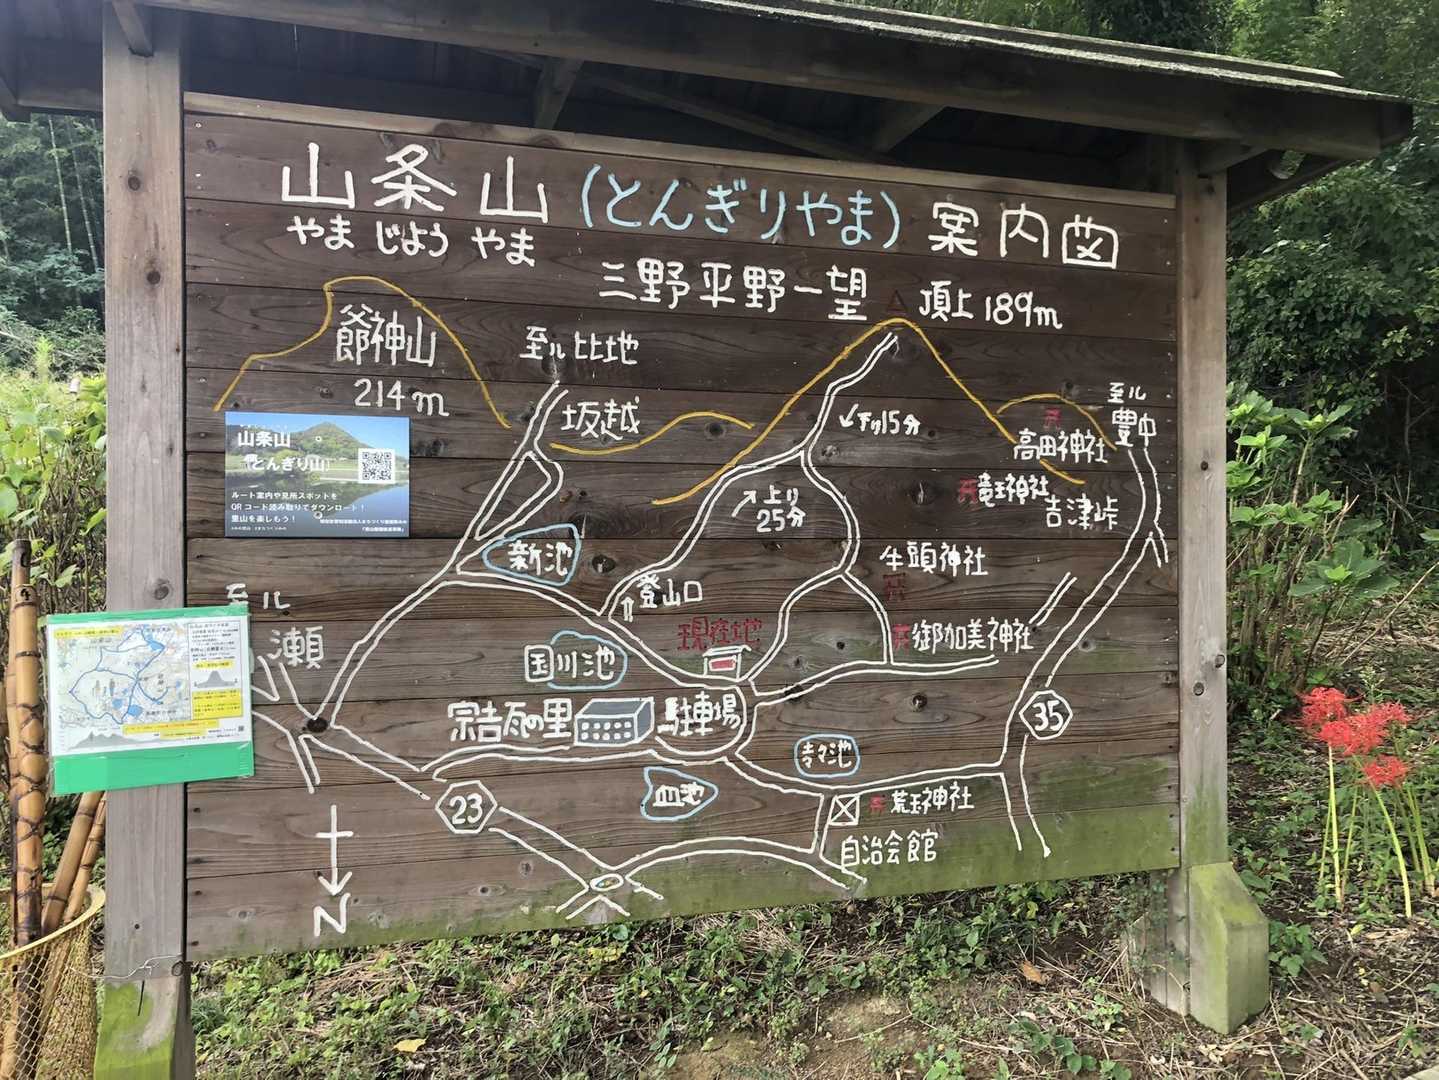 山条山(とんぎりやま)案内図
やまじようやま
三野平野一望
頂上189m
爺神山
214m
至ル比地
坂越
↙下り15分
↗上り
25分
至ル
豊中
高田神社
竜王神社
吉津峠
山条山
(とんぎり山)
ルート案内や見所スポットを
QRコード読み取りでダウンロード!
里山を楽しもう!
新池
登山口
牛頭神社
現在地
御加美神社
至ル
瀬
国川池
宗吉瓦の里
駐車場
35
寺々池
血池
23
荒王神社
自治会館
N